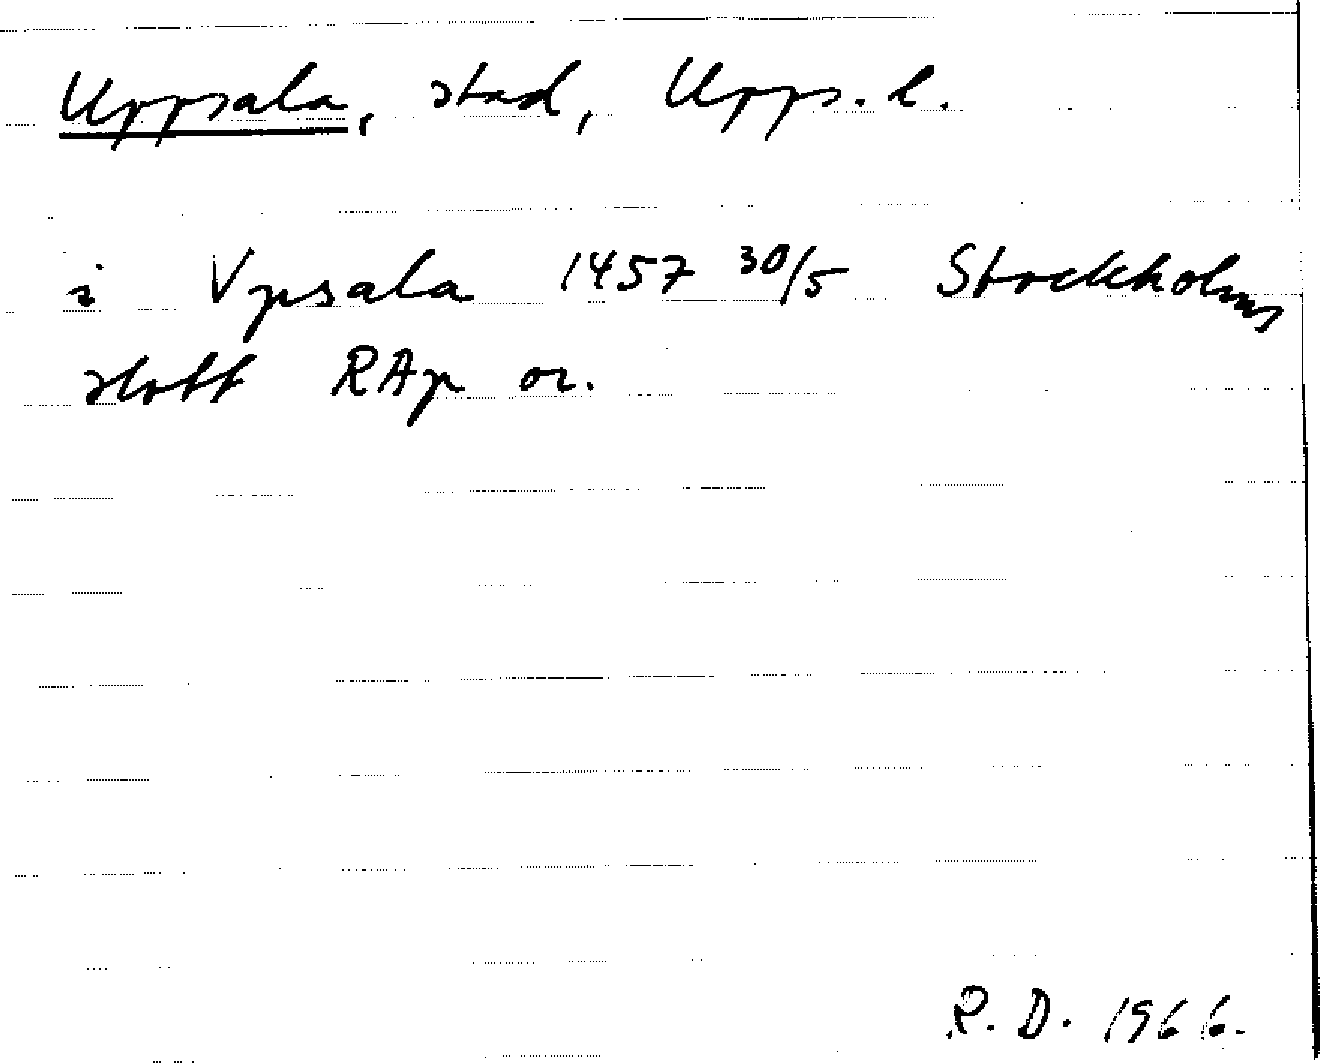 Uppsala, stad, Upps. l.
i Vpsala 1457 30/5 Stockholms
slott RAp or.
R. D. 1966.